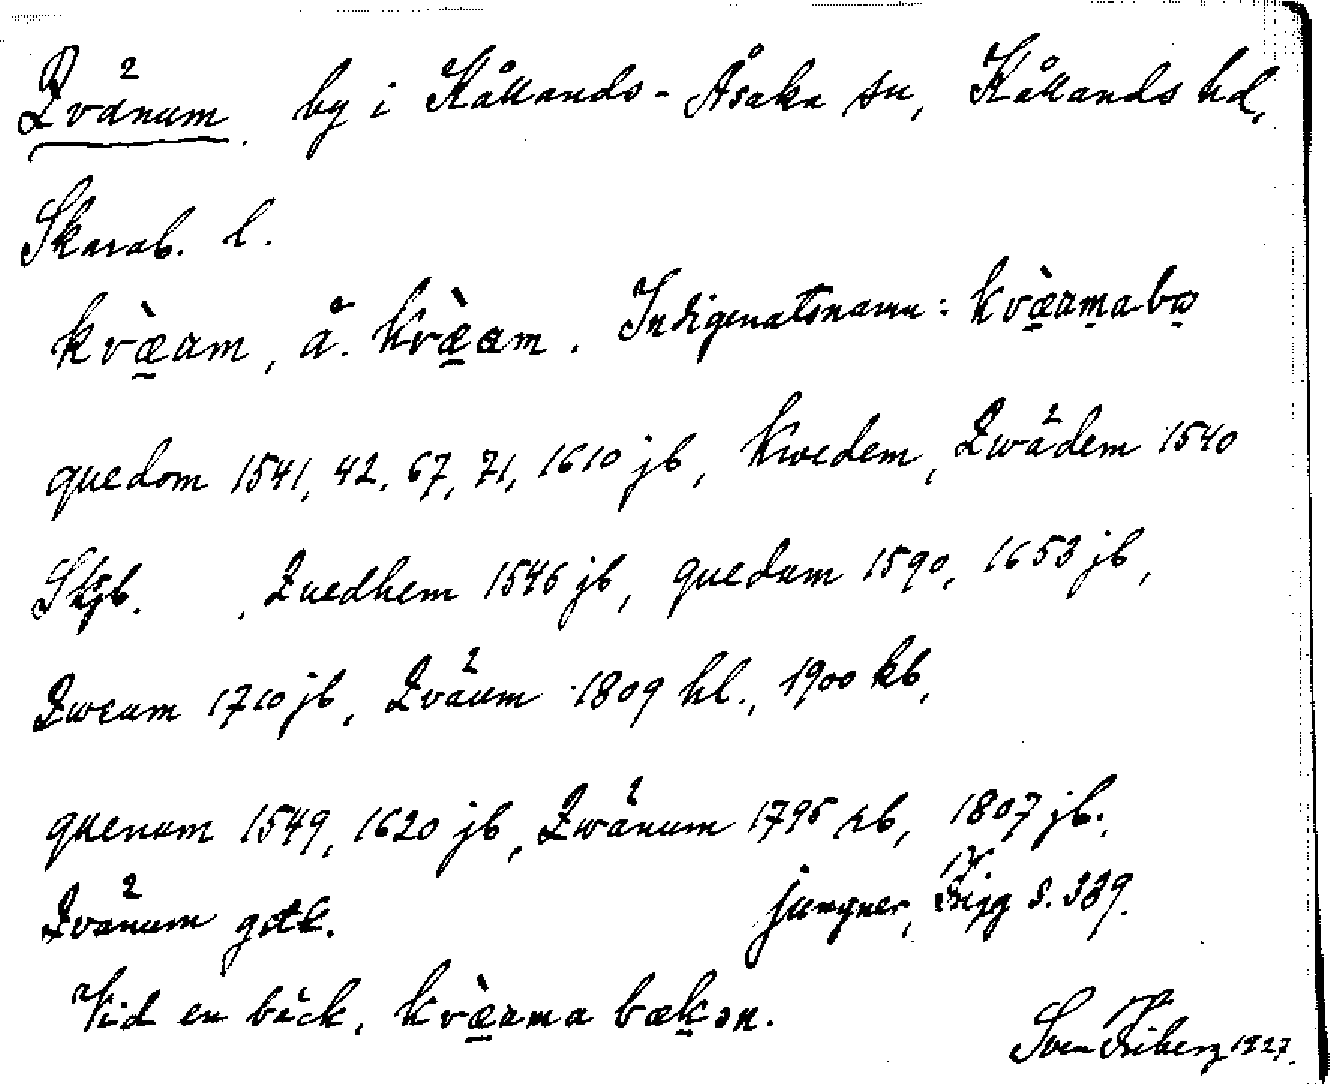 Qvänum, by i Kållands-Åsaka sn, Kållands hd,
Skarab. l.
kvæ̀am, ä. kvæ̀am. Indigenatsnamn: kvæ̀amabo
quedom 1541, 42, 67, 71, 1610 jb, Kwedem, Qwädem 1540
Skjb. , Quedhem 1546 jb, quedum 1590, 1653 jb,
Qweum 1710 jb, Qväum 1809 hl., 1900 kb,
quenum 1549, 1620 jb, Qwänum 1795 kb, 1807 jb.,
Qvänum gstk. Jungner, Frigg s. 339.
Vid en bäck, kvæ̀ama bækən.
Sven Friberg 1927.